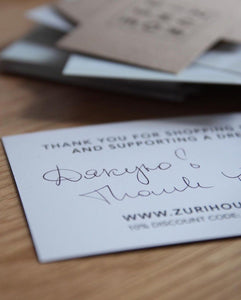 THANK YOU FOR SHOPPING
AND SUPPORTING A
Дякую
Thank
WWW.ZURIHOU
10% DISCOUNT CODE